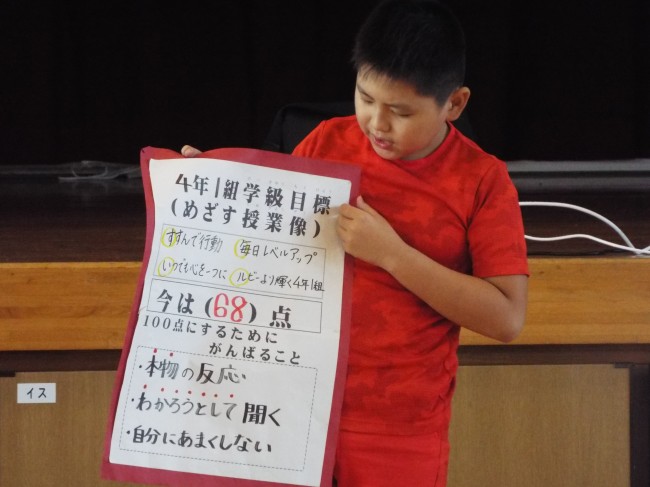 4年1組学級目標
(めざす授業像)
すすんで行動 毎日レベルアップ
いつでも心を一つに ルビーより輝く4年1組
今は(68)点
100点にするために
がんばること
・本物の反応
・わかろうとして聞く
・自分にあまくしない
イス